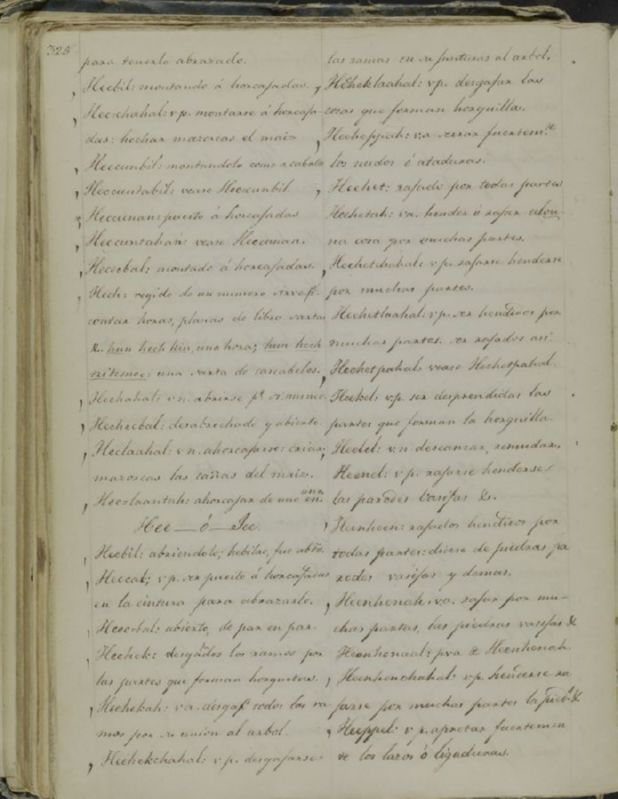 328
para tenerlo abrazado.
Heebil: montando á horcajadas.
Heechahal: v p. montarse á horcaja-
das: hechar mazorcas el maiz
Heecunbil: montandolo como a caballo
Heecuntabil: vease Heecunbil
puesto á horcajadas
Heecuntahan: vease
montado á horcajadas.
Hech: regido de un numero
contar horas, planas de libro sartas
&. hun hech kin, una hora; hun hech
una sarta de cascabeles.
Hechahal: v n. abrirse
desabrochado y abierto.
Heelaahal: v n. ahorcajarse: criar
mazorcas las cañas del maiz.
ahorcajar de uno en
una
Hee — ó — Jee.
Heebil: abriendolo;
v p. ser puesto á horcajadas
en la cintura para abrazarlo.
abierto, de par en par.
Hechek: desgajados los ramos por
las partes que forman horquetas.
Hechekah: v a. desgajar todos los ra-
mos por su union al arbol.
Hechekchahal: v p. desgajarse
las ramas en su junturas al arbol.
Hecheklaahal: v p. desgajar las
cosas que forman horquilla.
v a. cerrar fuertem.te
los nudos ó ataduras.
Hechet: rajado por todas partes
Hechetah: va. hender ó rajar alcu-
na cosa por muchas partes.
Hechetchahal: v p. rajarse henderse
por muchas partes.
Hechetlaahal: v p. ser hendidos por
muchas partes. ser rajados asi
Hechetpahal: vease Hechetpahal.
Heekel: v p. ser desprendidas las
partes que forman la horquilla.
v n. descansar,
v p. rajarse henderse
las paredes vasijas &.
Heenheen: rajados hendidos por
todas partes: dicese de piedras, pa
redes vasijas y demas.
Heenhenah: va. rajar por mu-
chas partes, las piedras vasijas &
Heenhenaal: pva de Heenhenah.
Heenhenchahal: v p. henderse ra
jarse por muchas partes la
v p. apretar fuertemen
te los lazos ó ligaduras.